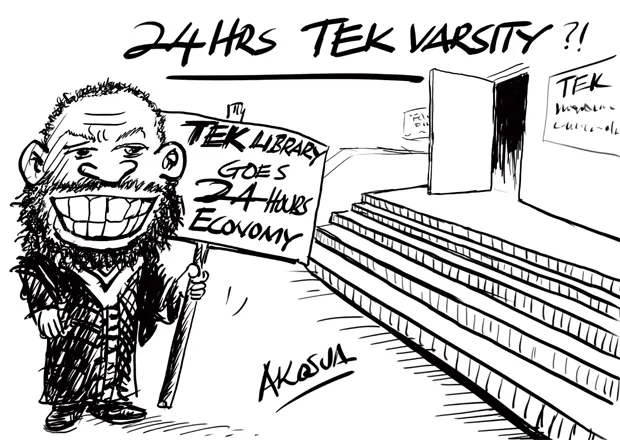 24HRS TEK VARSITY?!
TEK LIBRARY
GOES
24 HOURS
ECONOMY
TEK
AKOSUA